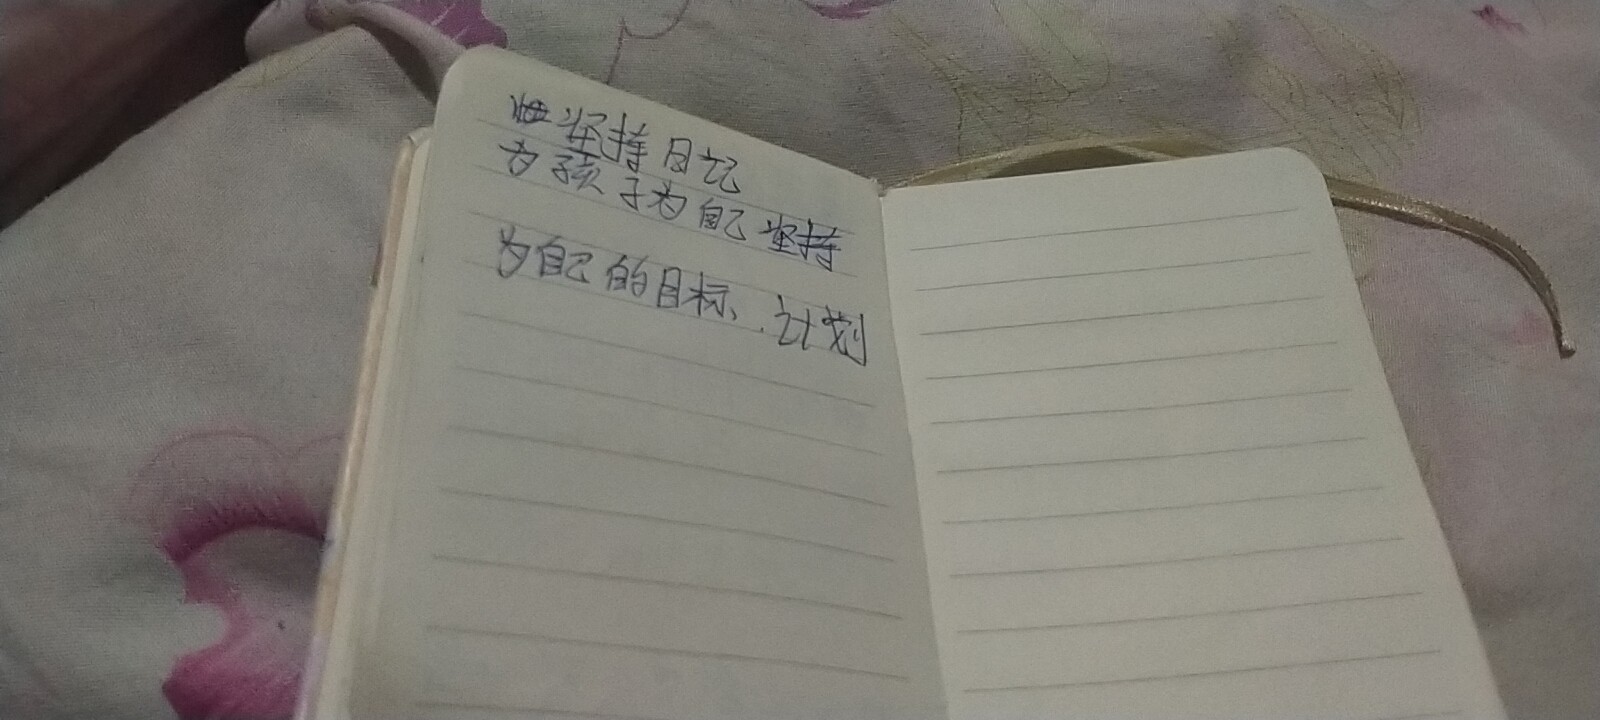 坚持日记
为孩子为自己坚持
为自己的目标、计划